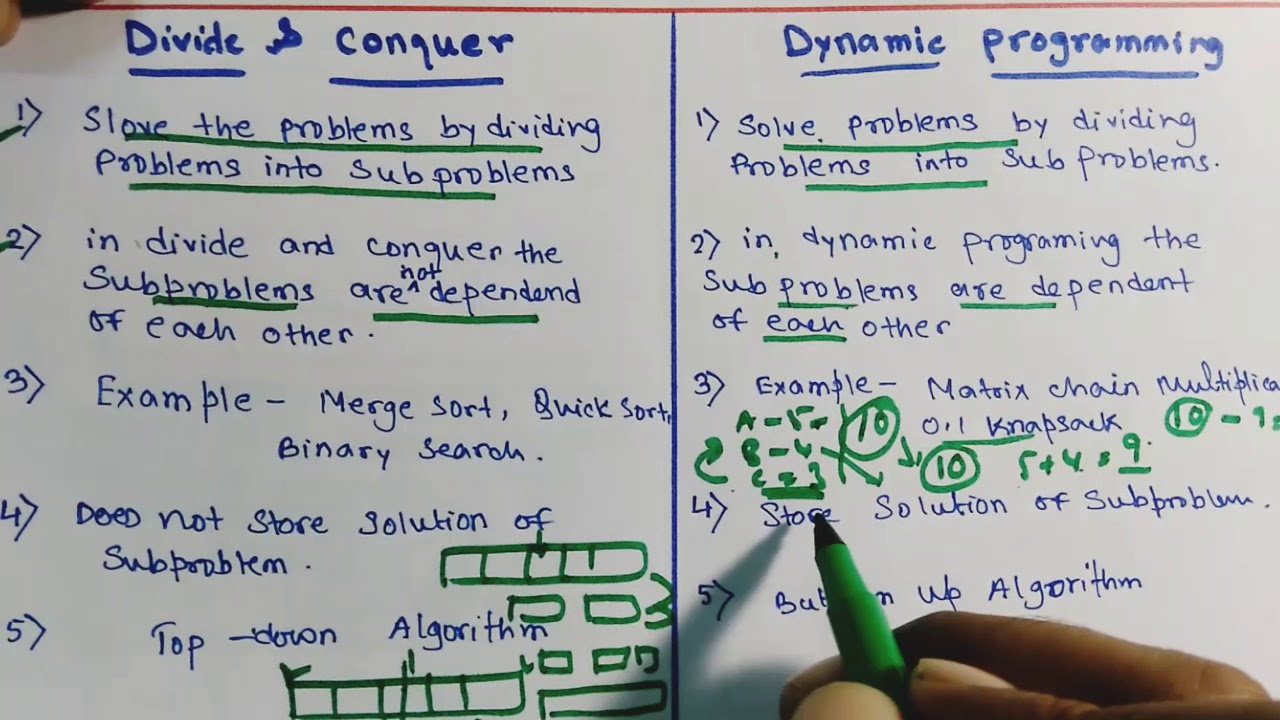 Divide & Conquer
1) Slove the problems by dividing
Problems into Subproblems
2) in divide and conquer the
not
Subproblems are dependend
of each other.
3) Example - Merge Sort, Quick Sort,
Binary Search.
4) Does not Store Solution of
Subproblem.
5) Top-down Algorithm
Dynamic programming
1) Solve problems by dividing
Problems into Sub Problems.
2) in dynamic programing the
Sub problems are dependent
of each other
3) Example - Matrix chain Multiplica
0.1 Knapsack
A - 5 -
B - 4
C = 3
10
10
5+4 = 9
10 - 9
4) Store Solution of Subproblem.
5) up Algorithm